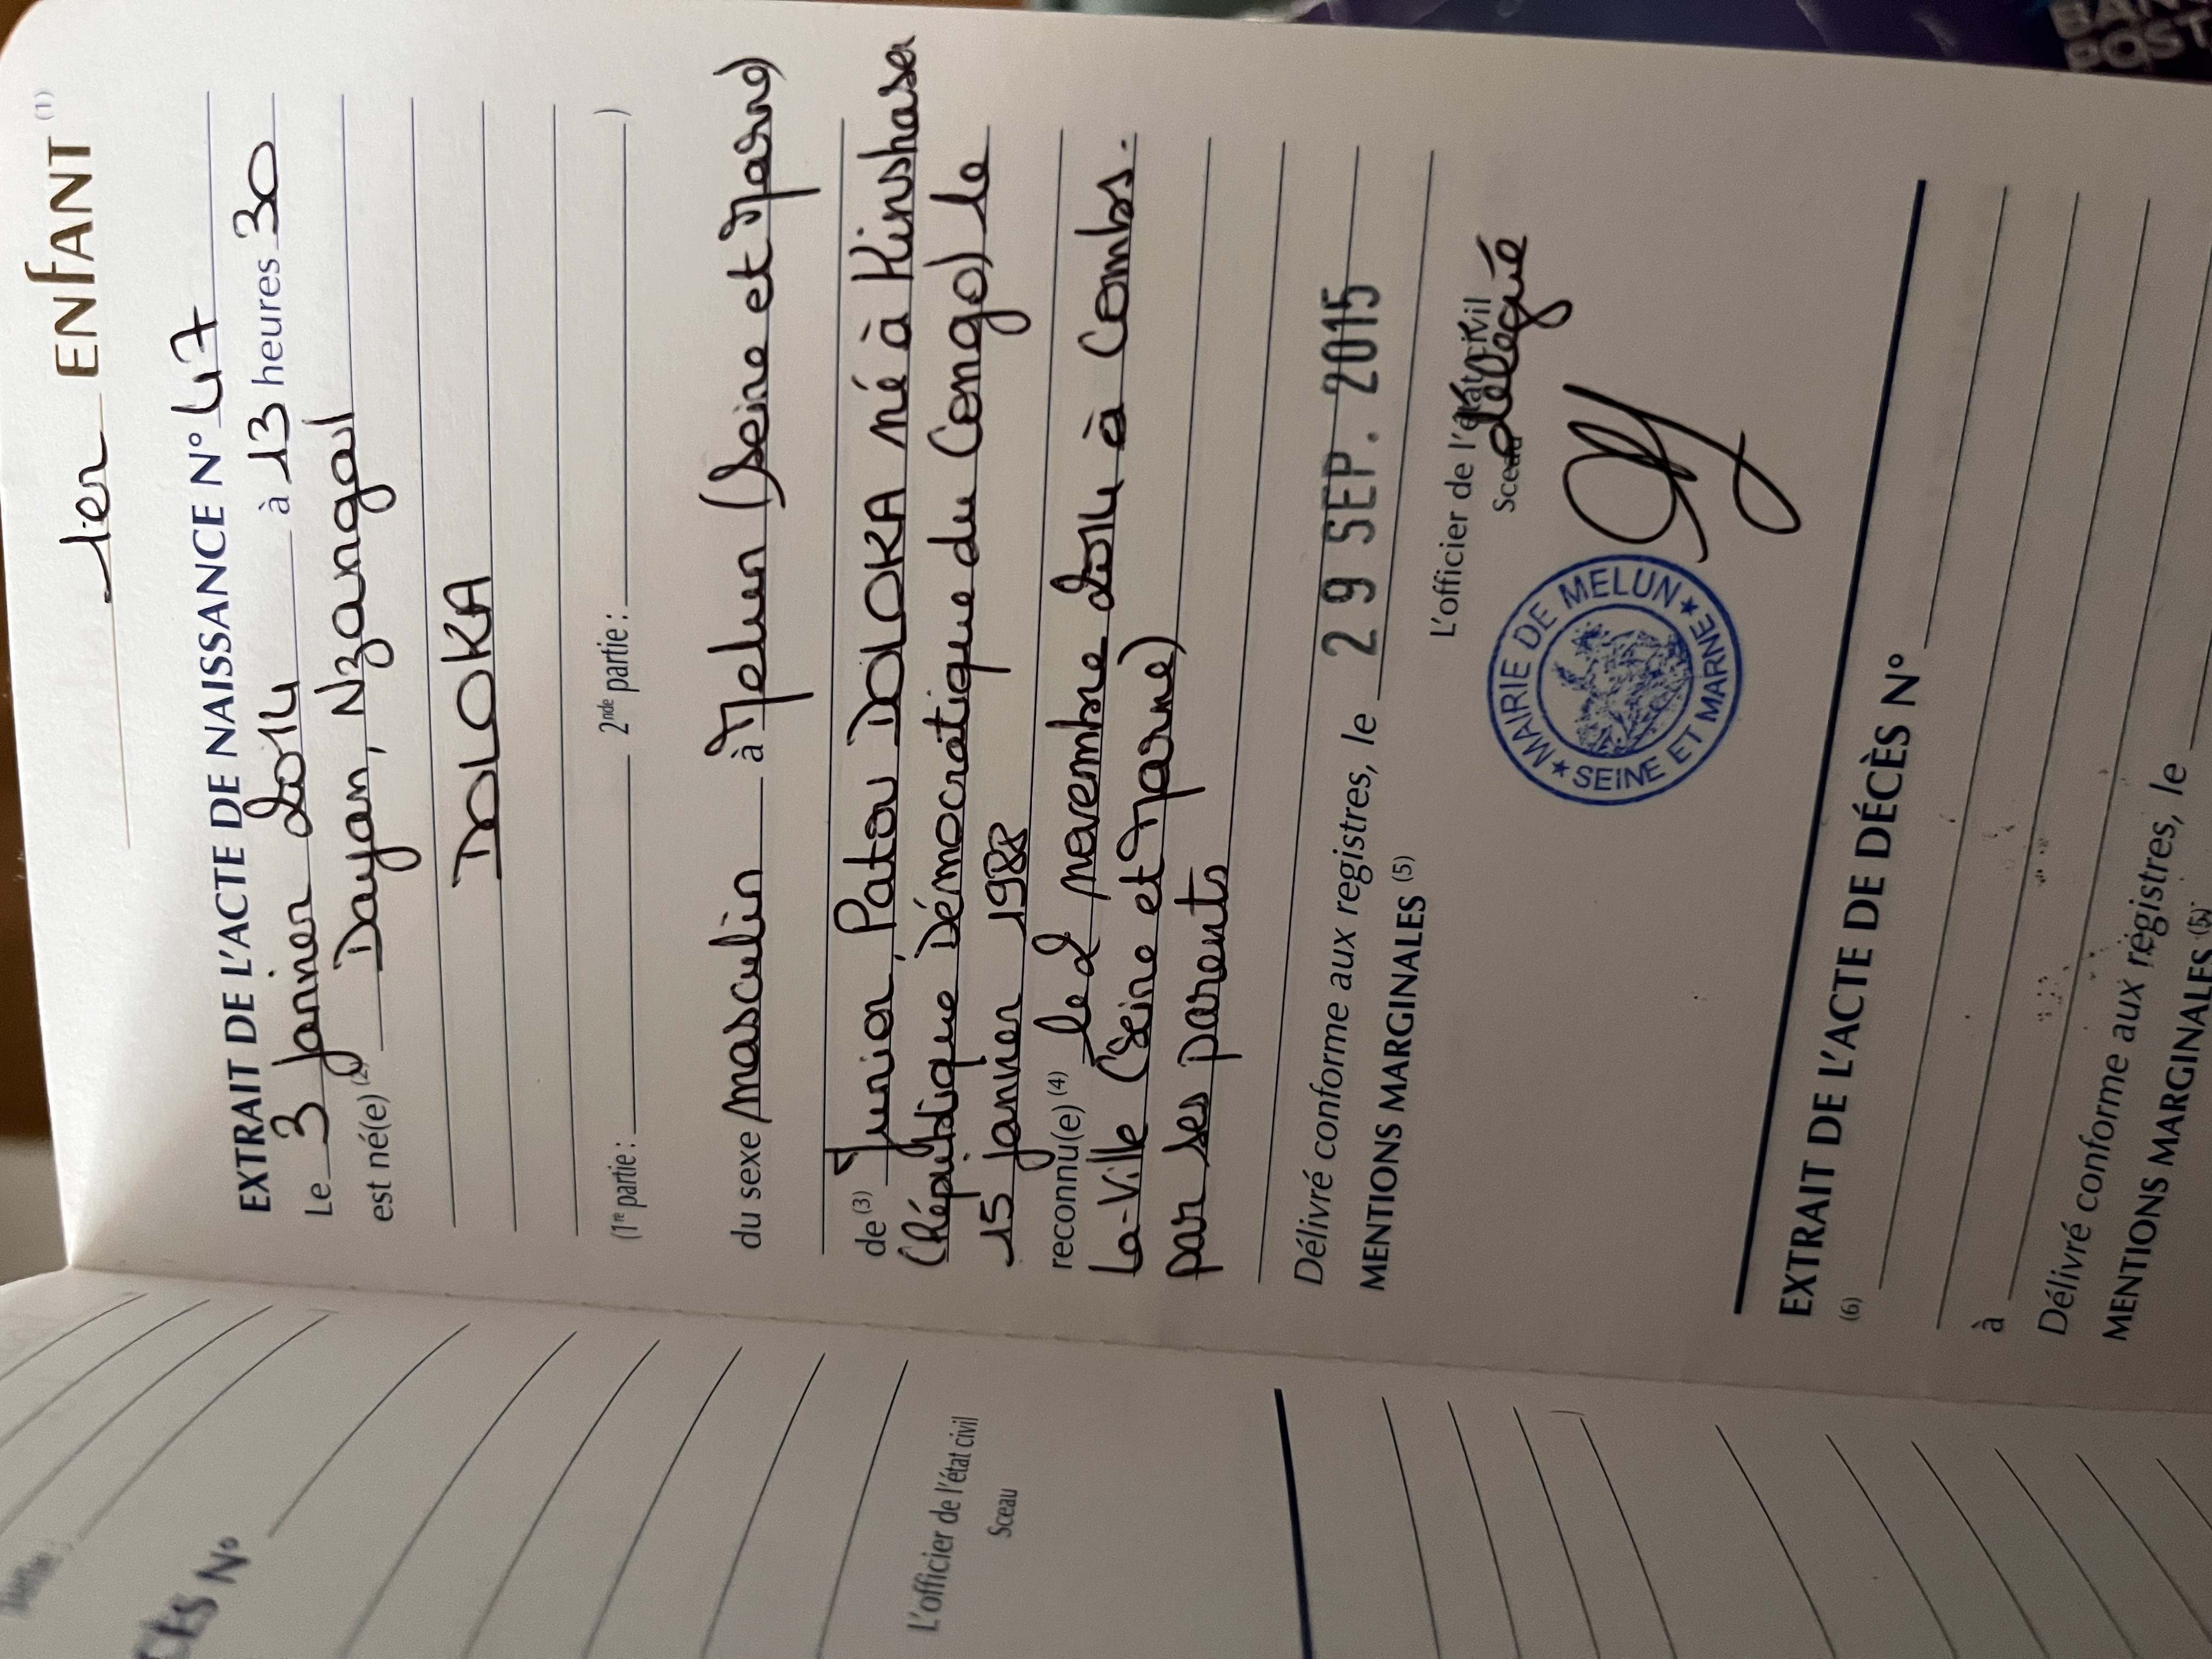 1er ENFANT (1)
EXTRAIT DE L'ACTE DE NAISSANCE N° 47
Le 3 janvier 2014 à 13 heures 30
est né(e) (2) Dayan, Nzangal
DOLOKA
(1re partie : 2nde partie : )
du sexe masculin à Melun (Seine et Marne)
de (3) Junior, Patou DOLOKA né à Kinshasa
(République Démocratique du Congo) le
15 janvier 1988
reconnu(e) (4) le 2 novembre 2014 à Combs-
la-Ville (Seine et Marne)
par ses parents
Délivré conforme aux registres, le 29 SEP. 2015
MENTIONS MARGINALES (5)
L'officier de l'état civil
Sceau
délégué
MAIRIE DE MELUN
★ SEINE ET MARNE ★
EXTRAIT DE L'ACTE DE DÉCÈS N°
(6)
à
Délivré conforme aux registres, le
MENTIONS MARGINALES (5)
N°
L'officier de l'état civil
Sceau